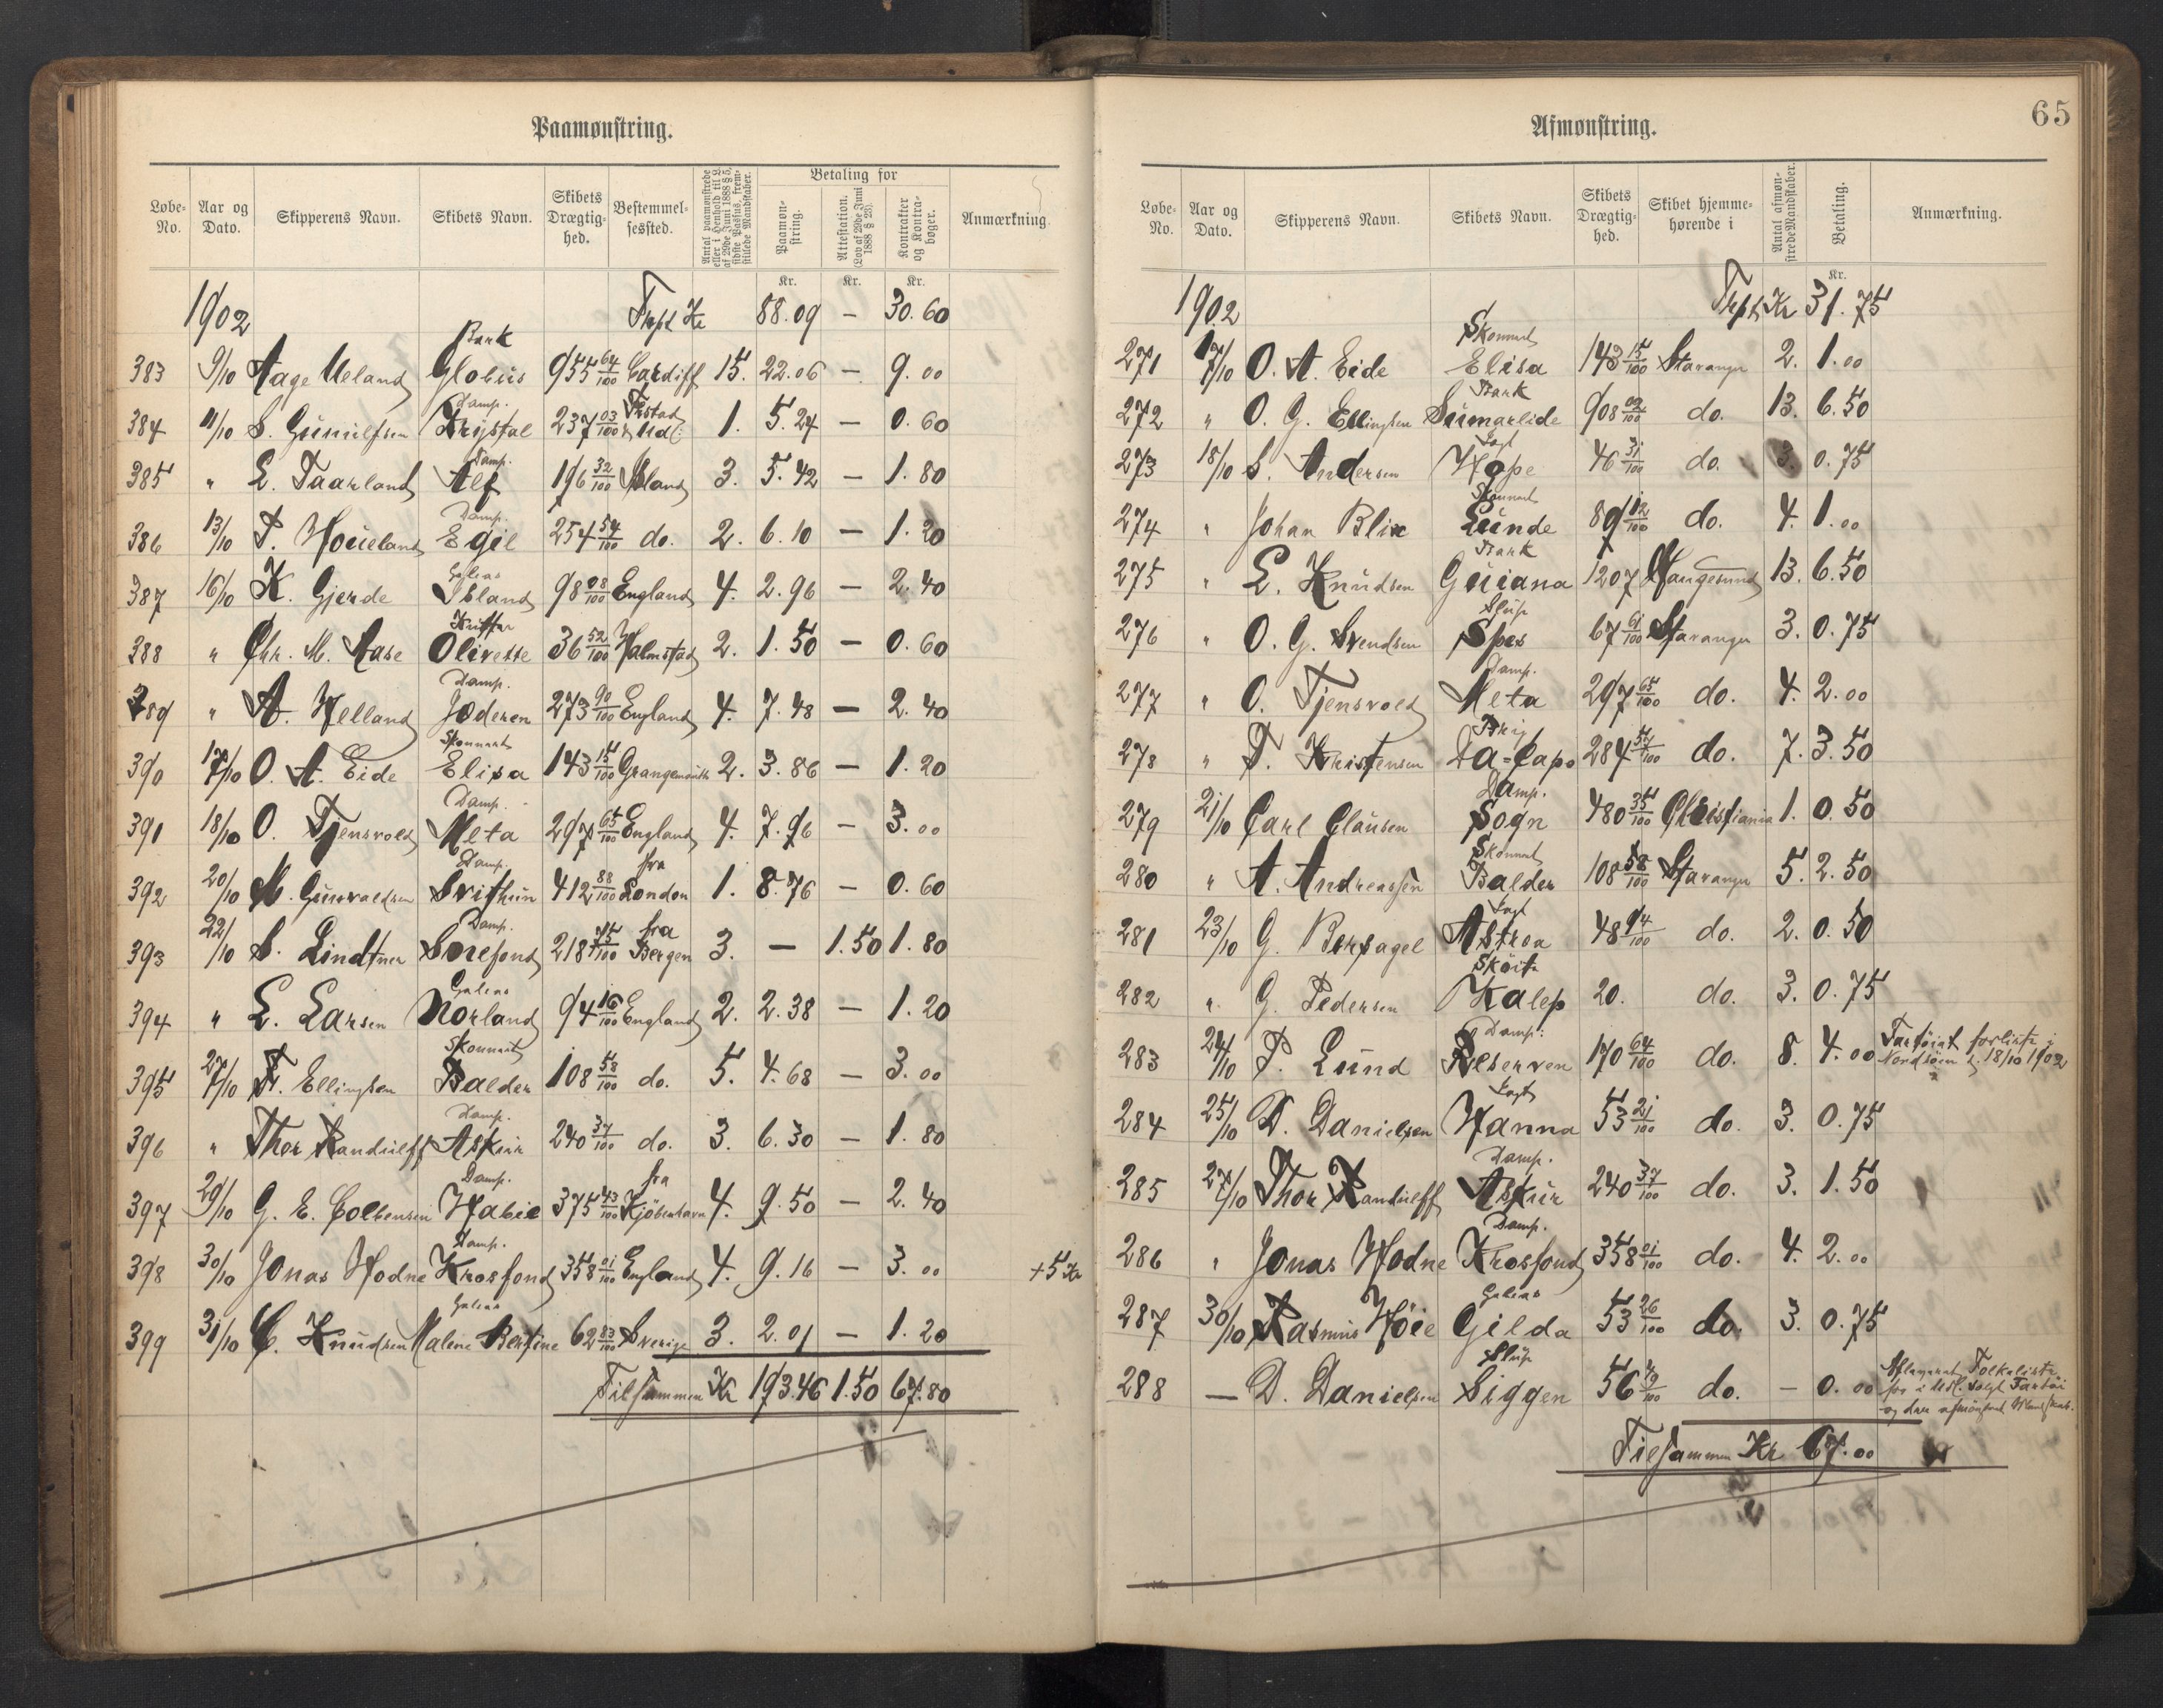 Paamønstring.
Løbe-No. Aar og Dato. Skipperens Navn. Skibets Navn. Skibets Drægtighed. Bestemmelsessted. Antal paamønstrede eller i Henhold til L. af 29de Juni 1888 § 5, sidste Passus, fremstillede Mandskaber. Betaling for Paamønstring. Attestation. (Lov af 29de Juni 1888 § 23). Kontrakter og Kontrabøger. Anmærkning.
Kr. Kr. Kr.
1902 Trpt Kr 88.09 — 30.60
383 9/10 Aage Ueland Bark Globus 955 64/100 Cardiff 15. 22.06 — 9.00
384 11/10 S. Gunulfsen Damp. Krystal 237 03/100 1. 5.24 — 0.60
385 " L. Taarland Damp. Alf 196 32/100 Island 3. 5.42 — 1.80
386 13/10 T. Houeland Damp. Egil 254 54/100 do. 2. 6.10 — 1.20
387 16/10 K. Gjerde Galeas Island 98 08/100 England 4. 2.96 — 2.40
388 " Chr. M. Aase Kutter Olivette 36 52/100 Halmstad 2. 1.50 — 0.60
389 " A. Helland Damp. Jæderen 273 90/100 England 4. 7.48 — 2.40
390 17/10 O. A. Eide Skonnert Elisa 143 15/100 Grangemouth 2. 3.86 — 1.20
391 18/10 O. Tjensvold Damp. Meta 297 65/100 England 4. 7.96 — 3.00
392 20/10 M. Gunvaldsen Damp. Svithun 412 88/100 fra London 1. 8.76 — 0.60
393 22/10 S. Lindtner Damp. Sorefond 218 75/100 fra Bergen 3. — 1.50 1.80
394 " L. Larsen Galeas Norland 94 16/100 England 2. 2.38 — 1.20
395 27/10 Fr. Ellingsen Skonnert Balder 108 58/100 do. 5. 4.68 — 3.00
396 " Thor Randulff Damp. Askur 240 37/100 do. 3. 6.30 — 1.80
397 29/10 G. E. Colbensen Damp. Habil 375 43/100 fra Kjöbenhavn 4. 9.50 — 2.40
398 30/10 Jonas Hodne Damp. Krosfond 358 01/100 England 4. 9.16 — 3.00 +5 Kr
399 31/10 C. Knudsen Galeas Malene Bertine 62 83/100 Sverige 3. 2.01 — 1.20
Tilsammen Kr 193.46 1.50 67.80
65
Afmønstring.
Løbe-No. Aar og Dato. Skipperens Navn. Skibets Navn. Skibets Drægtighed. Skibet hjemmehørende i Antal afmønstrede Mandskaber. Betaling. Anmærkning.
Kr.
1902 Trpt Kr 31.75
271 17/10 O. A. Eide Skonnert Elisa 143 15/100 Stavanger 2. 1.00
272 " O. G. Ellingsen Bark Sumarlide 908 02/100 do. 13. 6.50
273 18/10 S. Andersen Jagt Hope 46 31/100 do. 3. 0.75
274 " Johan Blix Skonnert Lunde 89 12/100 do. 4. 1.00
275 " L. Knudsen Bark Guiana 1207 Haugesund 13. 6.50
276 " O. G. Svendsen Slup Spes 67 61/100 Stavanger 3. 0.75
277 " O. Tjensvold Damp. Meta 297 65/100 do. 4. 2.00
278 " T. Kristensen Brig Da-Capo 284 54/100 do. 7. 3.50
279 21/10 Carl Clausen Damp. Sogn 480 35/100 Christiania 1. 0.50
280 " A. Andreassen Skonnert Balder 108 58/100 Stavanger 5. 2.50
281 23/10 G. Bersagel Jagt Astrea 48 94/100 do. 2. 0.50
282 " G. Pedersen Sköite Kalep 20. do. 3. 0.75
283 24/10 T. Lund Damp. Reserven 170 64/100 do. 8. 4.00 Fartöiet forliste i Nordsöen d. 18/10 1902
284 25/10 D. Danielsen Jagt Hanna 53 21/100 do. 3. 0.75
285 27/10 Thor Randulff Damp. Askur 240 37/100 do. 3. 1.50
286 " Jonas Hodne Damp. Krosfond 358 01/100 do. 4. 2.00
287 30/10 Rasmus Höie Galeas Gilda 53 26/100 do. 3. 0.75
288 — D. Danielsen Slup Siggen 56 49/100 do. — 0.00 Afleveret Folkeliste for i Udl. solgt Fartöi og der afmönstret Mandskab.
Tilsammen Kr 67.00